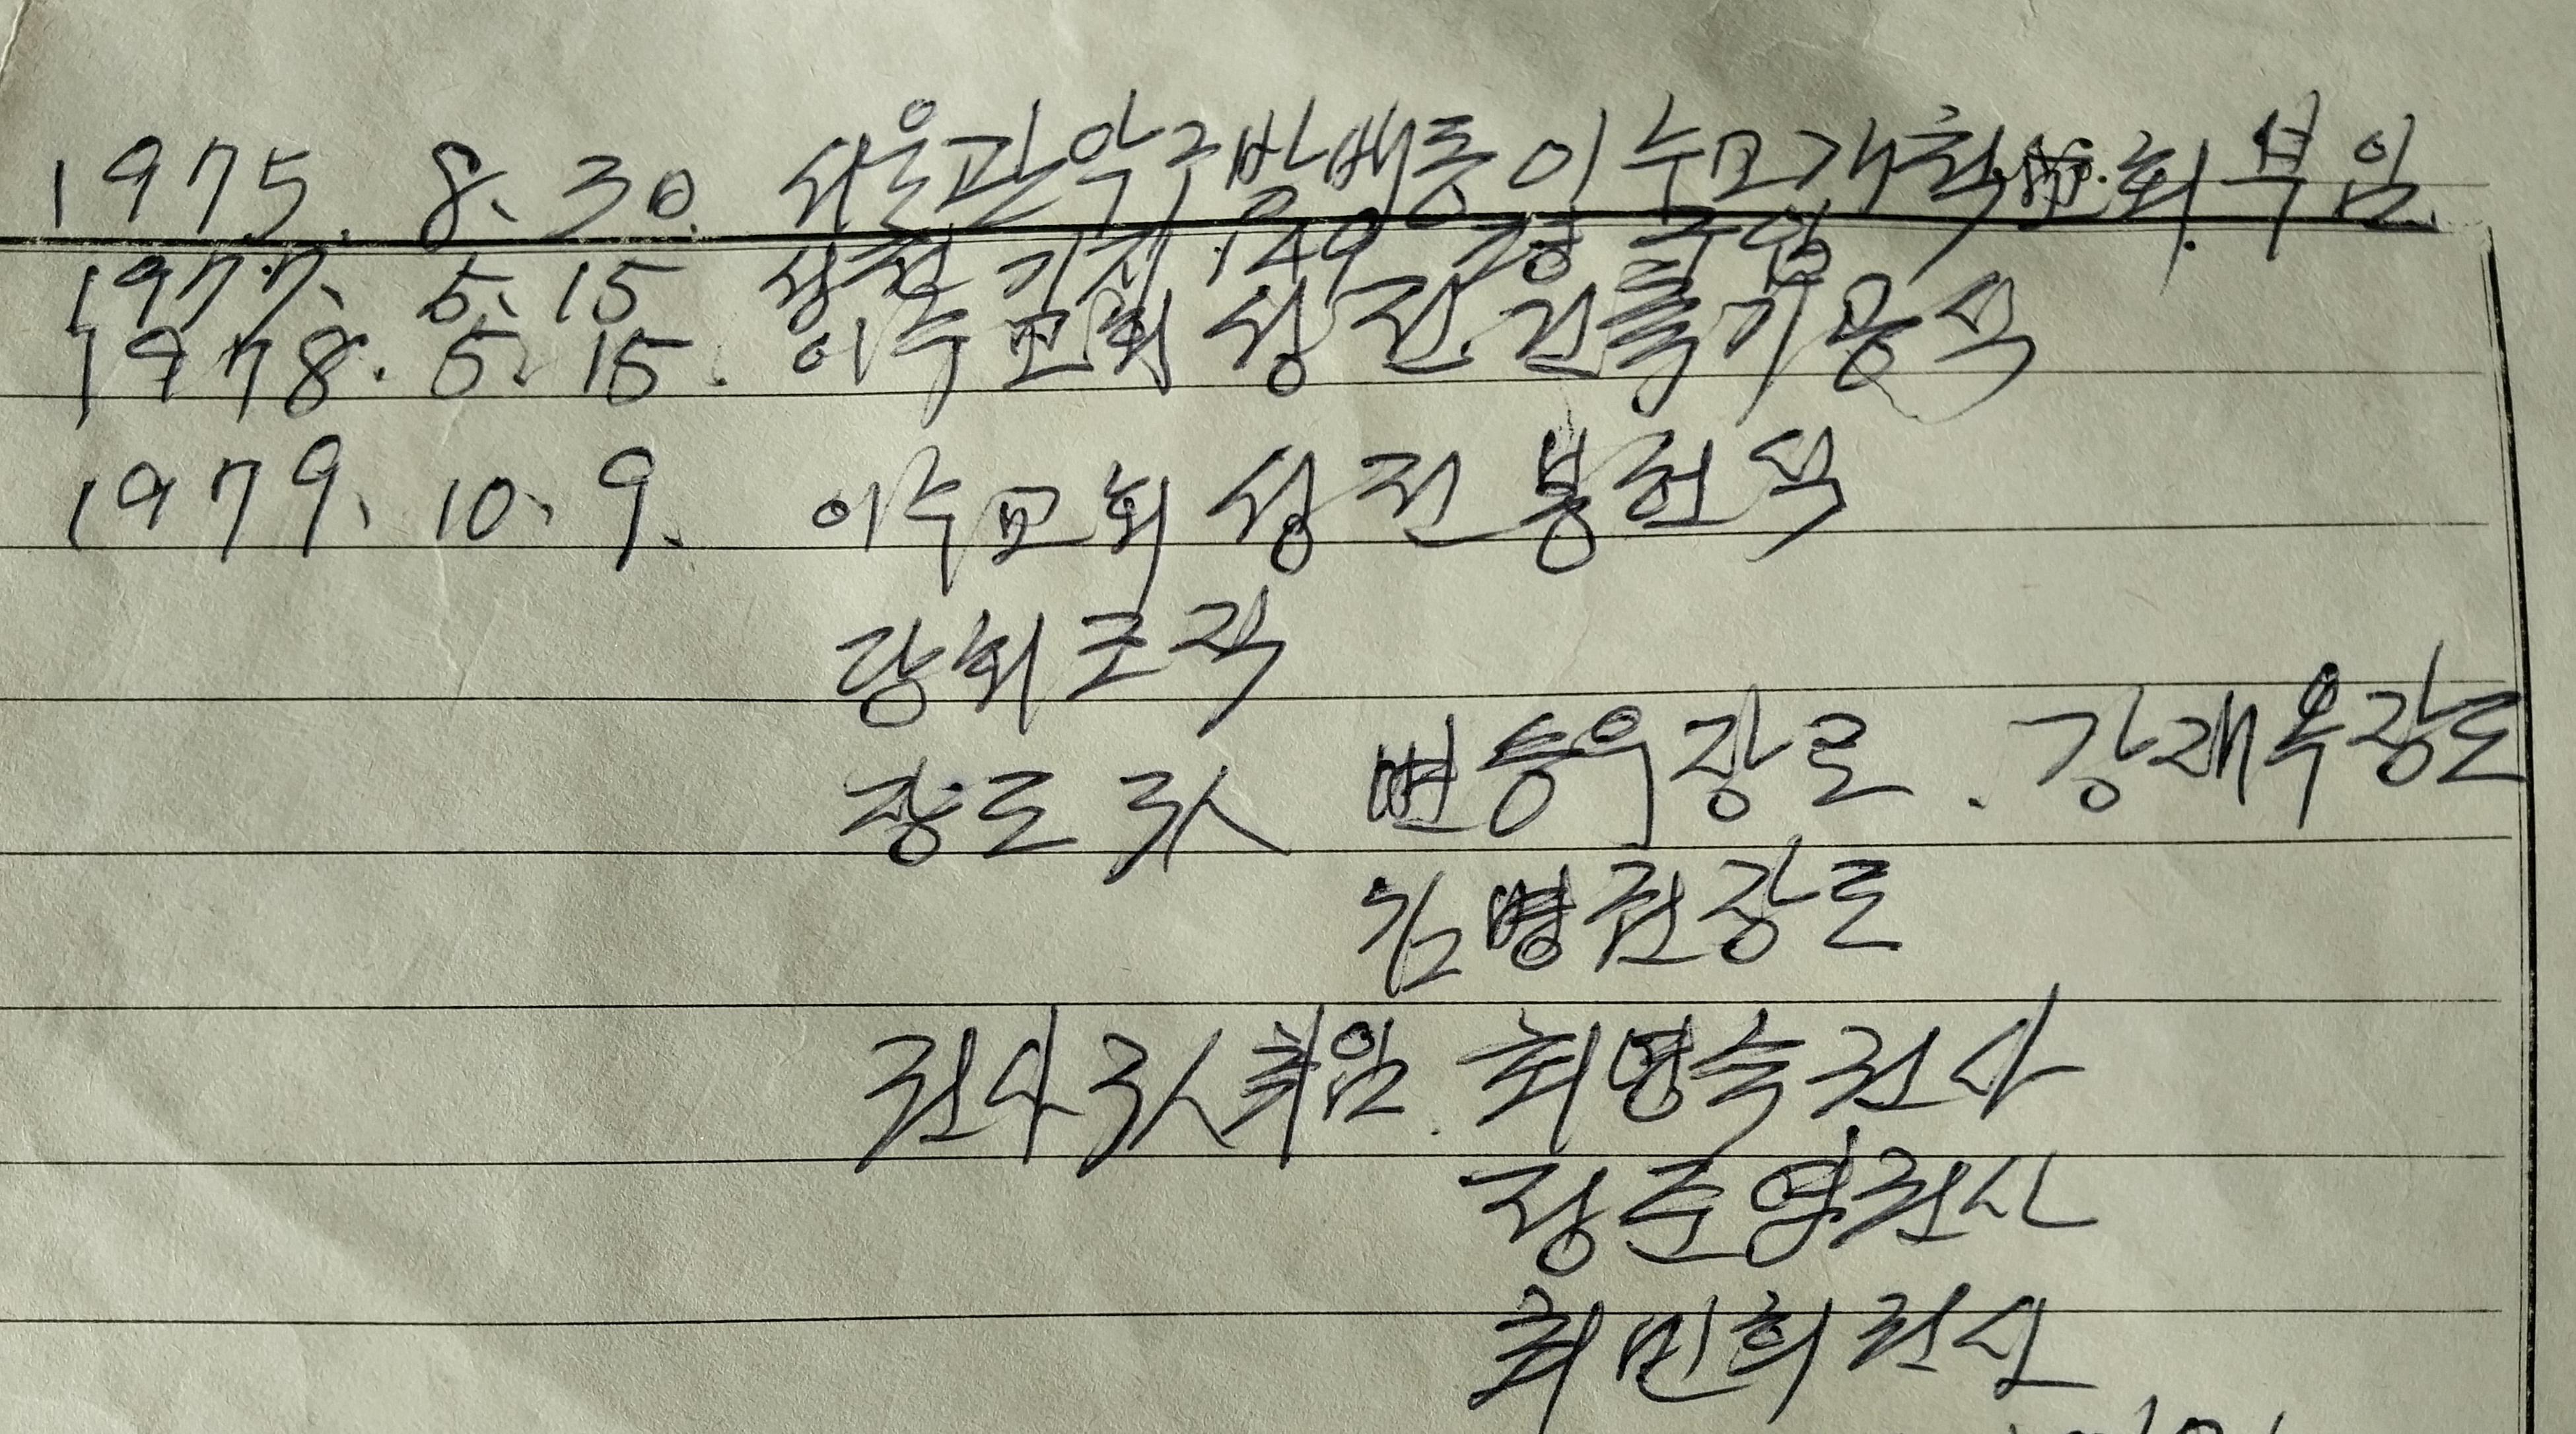 1975. 8. 30. 서울관악구방배동이수교개척교회부임
1977. 5. 15 성전기지 129평 구입
1978. 5. 15. 이수교회 성전건축기공식
1979. 10. 9. 이수교회 성전봉헌식
당회조직
장로 3人 변승우장로. 강재옥장로
김병권장로
권사 3人취임. 최영숙권사
장순영권사
최민희권사